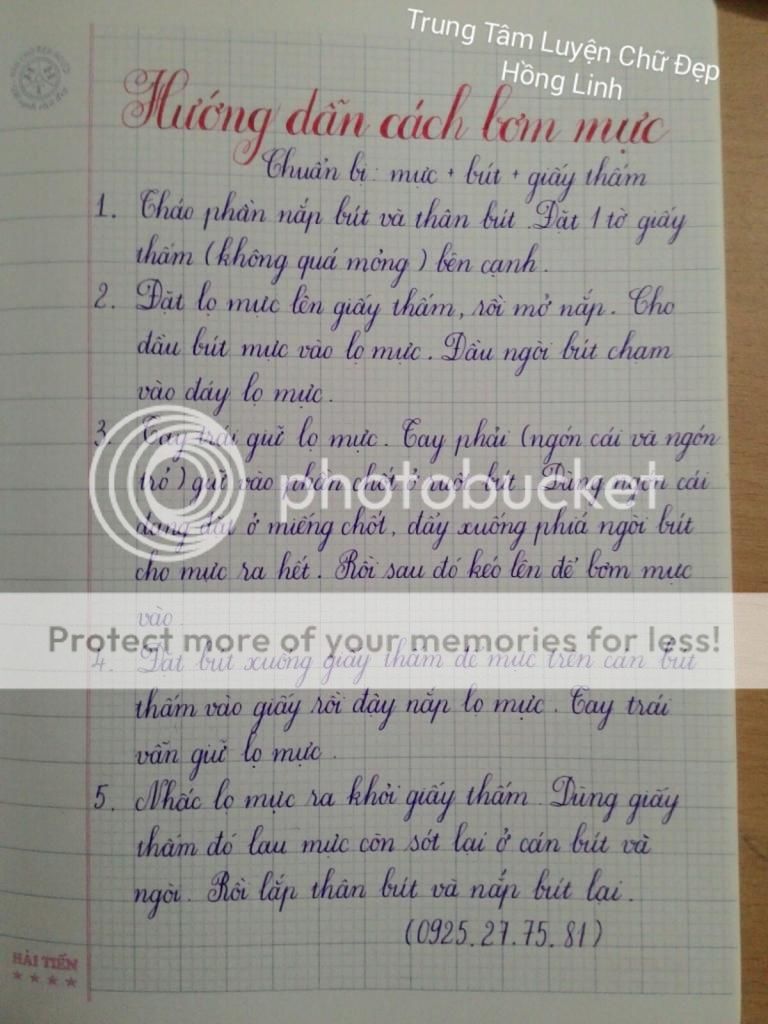 Trung Tâm Luyện Chữ Đẹp
Hồng Linh
Hướng dẫn cách bơm mực
Chuẩn bị: mực + bút + giấy thấm
1. Tháo phần nắp bút và thân bút. Đặt 1 tờ giấy
thấm (không quá mỏng) bên cạnh.
2. Đặt lọ mực lên giấy thấm, rồi mở nắp. Cho
đầu bút mực vào lọ mực. Đầu ngòi bút chạm
vào đáy lọ mực.
3. Tay trái giữ lọ mực. Tay phải (ngón cái và ngón
trỏ) giữ vào phần chốt ở ruột bút. Dùng ngón cái
đang đặt ở miếng chốt, đẩy xuống phía ngòi bút
photobucket
cho mực ra hết. Rồi sau đó kéo lên để bơm mực
vào.
Protect more of your memories for less!
4. Đặt bút xuống giấy thấm để mực trên cán bút
thấm vào giấy rồi đậy nắp lọ mực. Tay trái
vẫn giữ lọ mực.
5. Nhấc lọ mực ra khỏi giấy thấm. Dùng giấy
thấm đó lau mực còn sót lại ở cán bút và
ngòi. Rồi lắp thân bút và nắp bút lại.
(0925.27.75.81)
HẢI TIẾN